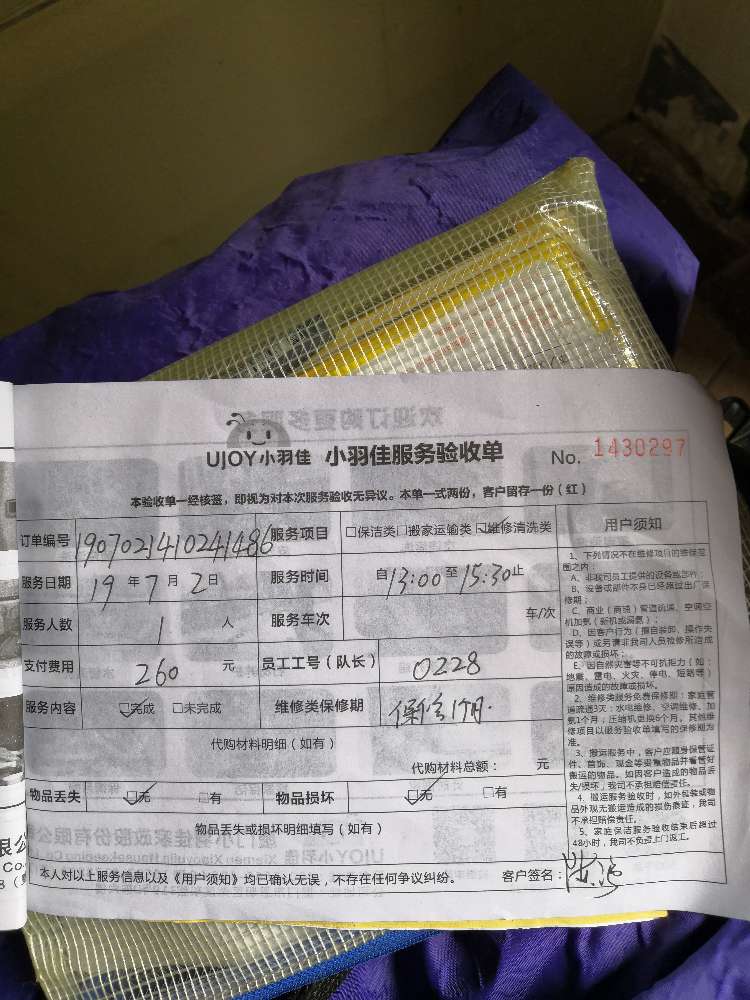 UJOY小羽佳 小羽佳服务验收单 No. 1430297
本验收单一经核签，即视为对本次服务验收无异议。本单一式两份，客户留存一份（红）
订单编号 1907021410241486 服务项目 □保洁类□搬家运输类☑维修清洗类 用户须知
服务日期 19 年 7 月 2 日 服务时间 自13:00至15:30止
服务人数 1 人 服务车次 车/次
支付费用 260 元 员工工号（队长） 0228
服务内容 ☑完成 □未完成 维修类保修期 保修1个月.
代购材料明细（如有）
代购材料总额： 元
物品丢失 ☑无 □有 物品损坏 ☑无 □有
物品丢失或损坏明细填写（如有）
本人对以上服务信息以及《用户须知》均已确认无误，不存在任何争议纠纷。 客户签名：
1、下列情况不在维修项目的维保范
围之内：
A、非我司员工提供的设备或部件；
B、设备或部件本身已经超过出厂保
修期；
C、商业（商铺）管道疏通、空调空
机加氨（新机或漏氨）；
D、因客户行为（擅自装卸、操作失
误等）或另请非我司人员检修所造成
的故障或损坏；
E、因自然灾害等不可抗拒力（如：
地震、雷电、火灾、停电、短路等）
原因造成的故障或损坏。
2、维修类服务免费保修期：家庭管
道疏通3天；水电维修、空调维修、加
氨1个月；压缩机更换6个月。其他维
修项目以服务验收单填写的保修期为
准。
3、搬运服务中，客户应随身保管证
件、首饰、现金等贵重物品并看管好
搬运的物品。如因客户造成的物品丢
失/损坏，我司不承担赔偿责任。
4、搬运服务验收时，如外包装或物
品外观无搬运造成的损伤痕迹，我司
不承担赔偿责任。
5、家庭保洁服务验收结束后超过
48小时，我司不负责上门返工。